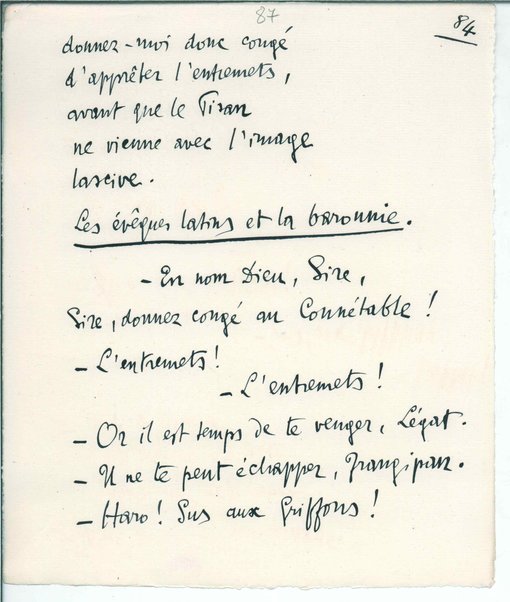 87
84
donnez-moi donc congé
d'apprêter l'entremets,
avant que le Tiran
ne vienne avec l'image
lascive.
Les évêques latins et la baronnie.
- En nom Dieu, Sire,
Sire, donnez congé au Connétable !
- L'entremets !
- L'entremets !
- Or il est temps de te venger, Légat.
- Il ne te peut échapper, Frangipan.
- Haro ! Sus aux Griffons !